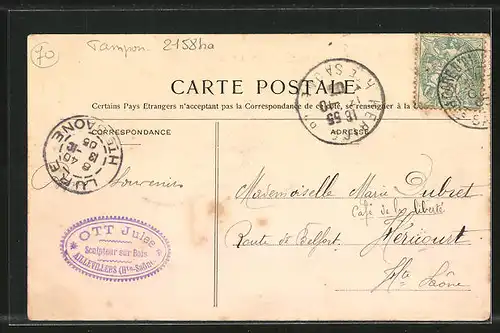 70
Tampon 2158ha
CARTE POSTALE
Certains Pays Etrangers n'acceptant pas la Correspondance de se renseigner à la
CORRESPONDANCE
ADRESSE
LURE Hte SAONE
8 40
13
05
16 55
Souvenirs
Mademoiselle Marie Dubret
Café de la liberté
Route de Belfort, Héricourt
Hte Saône
OTT Jules
Sculpteur sur Bois
AILLEVILLERS (Hte-Saône)